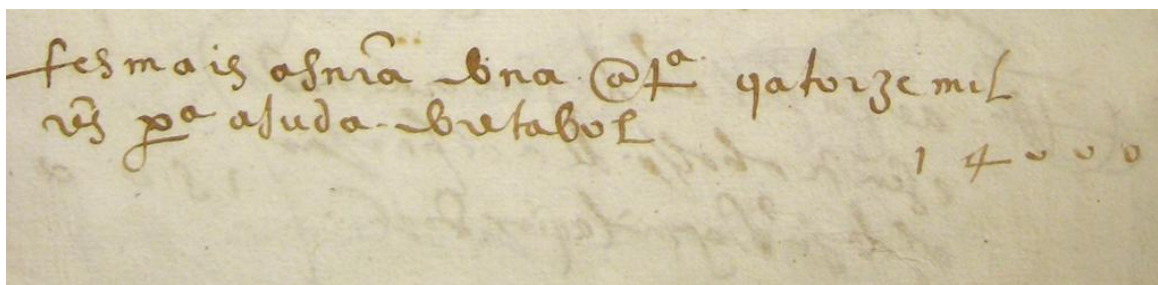 fes mais asnrã dona qatorze mil
rs̃ pª aJuda do retabol
14000